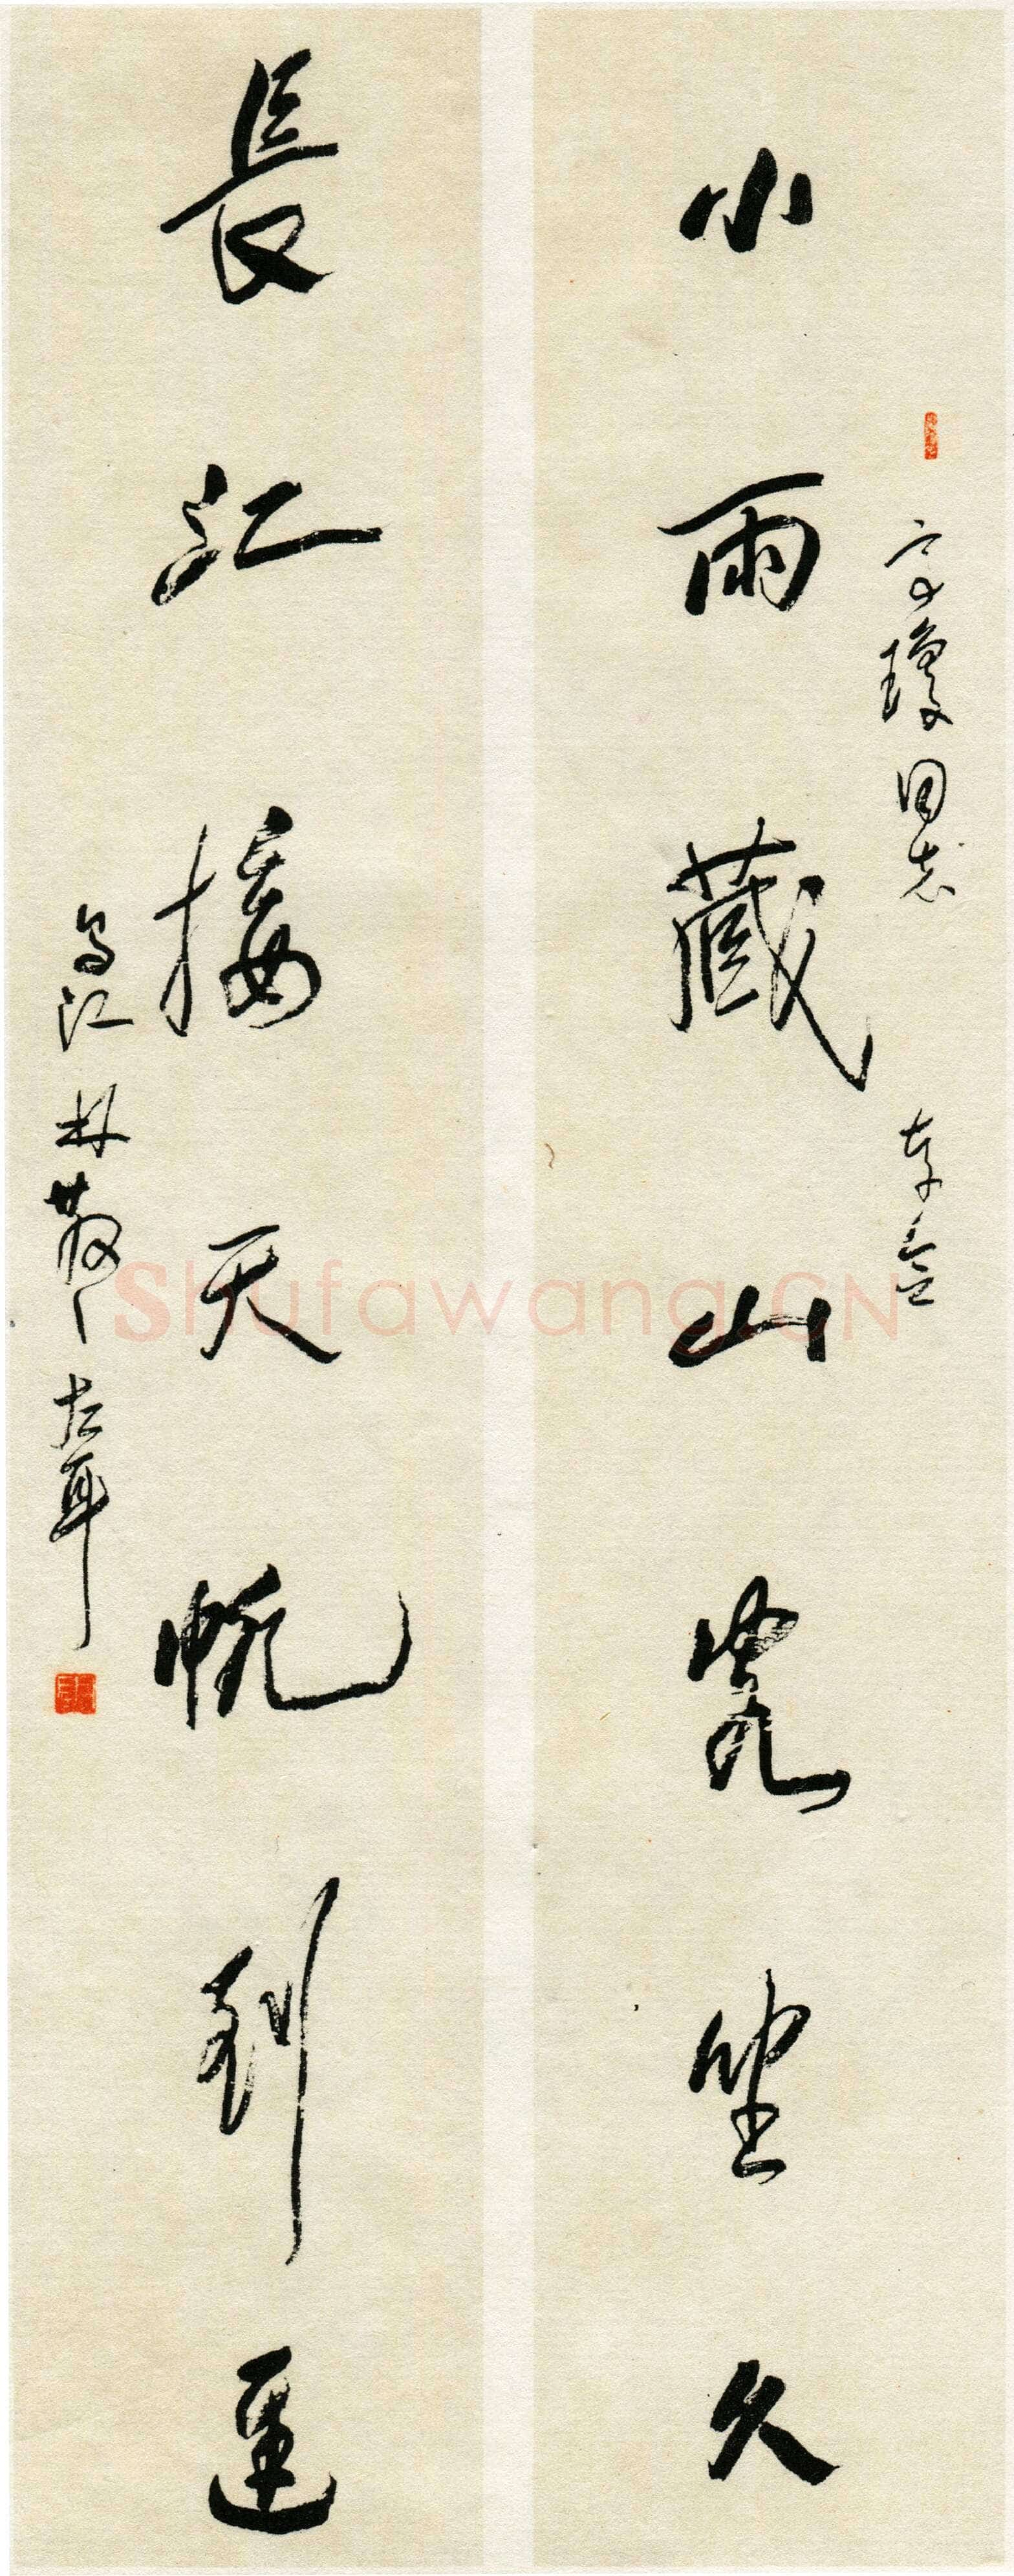 小雨藏山客坐久
同志
長江接天帆到遲
烏江林散之左耳
Shufawang.CN